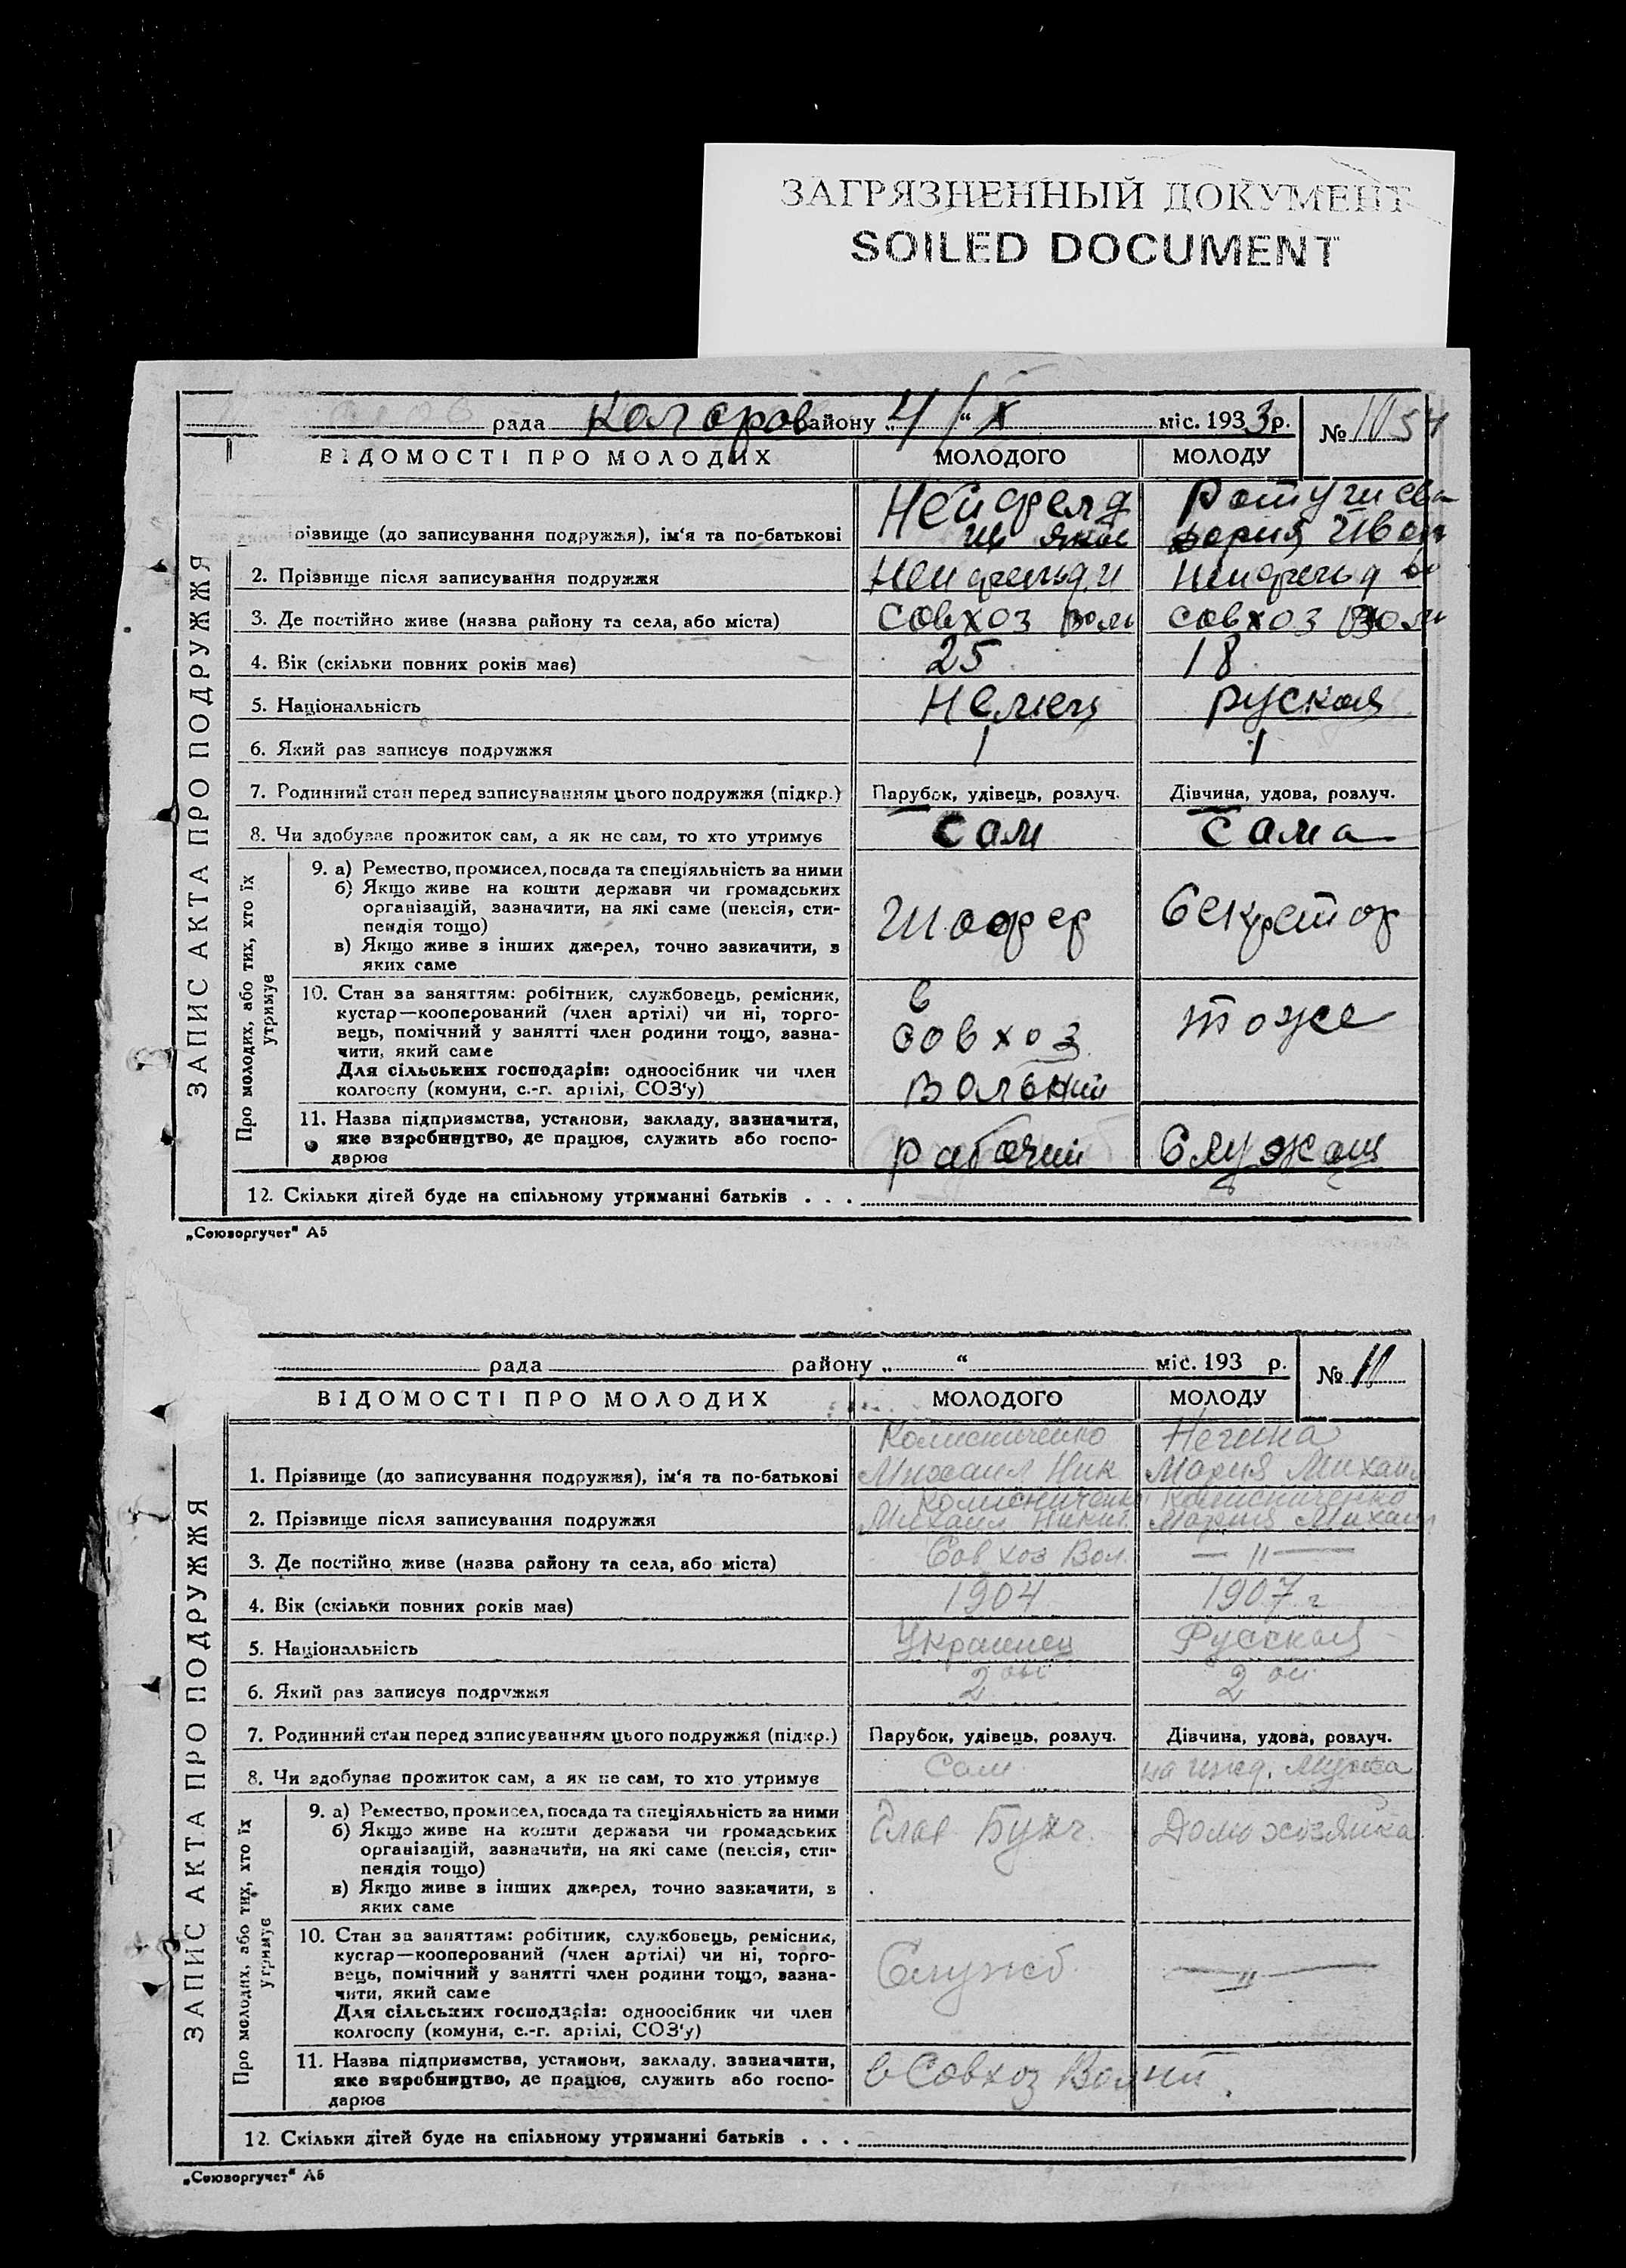 ЗАГРЯЗНЕННЫЙ ДОКУМЕНТ
SOILED DOCUMENT
рада району „4/“ X міс. 1933 р. №
ВІДОМОСТІ ПРО МОЛОДИХ МОЛОДОГО МОЛОДУ
різвище (до записування подружжя), ім'я та по-батькові
2. Прізвище після записування подружжя
3. Де постійно живе (назва району та села, або міста) Совхоз Совхоз
4. Вік (скільки повних років має) 25 18
5. Національність Немец руская
6. Який раз записує подружжя 1 1
7. Родинний стан перед записуванням цього подружжя (підкр.) Парубок, удівець, розлуч. Дівчина, удова, розлуч.
8. Чи здобуває прожиток сам, а як не сам, то хто утримує Сам Сама
ЗАПИС АКТА ПРО ПОДРУЖЖЯ
Про молодих, або тих, хто їх утримує
9. а) Ремество, промисел, посада та спеціяльність за ними
б) Якщо живе на кошти держави чи громадських
організацій, зазначити, на які саме (пенсія, сти-
пендія тощо)
в) Якщо живе з інших джерел, точно зазначити, з
яких саме
Шофер Секретар
10. Стан за заняттям: робітник, службовець, ремісник,
кустар—кооперований (член артілі) чи ні, торго-
вець, помічний у занятті член родини тощо, зазна-
чити, який саме
Для сільських господарів: одноосібник чи член
колгоспу (комуни, с.-г. артілі, СОЗ'у)
в
совхоз тоже
11. Назва підприємства, установи, закладу, зазначити,
яке виробництво, де працює, служить або госпо-
дарює
Рабочий Служащ
12. Скільки дітей буде на спільному утриманні батьків . . .
„Союзоргучет“ А5
рада району „ “ міс. 193 р. № 11
ВІДОМОСТІ ПРО МОЛОДИХ МОЛОДОГО МОЛОДУ
1. Прізвище (до записування подружжя), ім'я та по-батькові Михаил Ник Мария Михаил
2. Прізвище після записування подружжя Михаил Никит Мария Михаил
3. Де постійно живе (назва району та села, або міста) Совхоз Вол. — " —
4. Вік (скільки повних років має) 1904 1907 г
5. Національність Украинец Русская
6. Який раз записує подружжя 2 ой 2 ой
7. Родинний стан перед записуванням цього подружжя (підкр.) Парубок, удівець, розлуч. Дівчина, удова, розлуч.
8. Чи здобуває прожиток сам, а як не сам, то хто утримує Сам на ижд. мужа
ЗАПИС АКТА ПРО ПОДРУЖЖЯ
Про молодих, або тих, хто їх утримує
9. а) Ремество, промисел, посада та спеціяльність за ними
б) Якщо живе на кошти держави чи громадських
організацій, зазначити, на які саме (пенсія, сти-
пендія тощо)
в) Якщо живе з інших джерел, точно зазначити, з
яких саме
Глав Бухг. Домохозяйка
10. Стан за заняттям: робітник, службовець, ремісник,
кустар—кооперований (член артілі) чи ні, торго-
вець, помічний у занятті член родини тощо, зазна-
чити, який саме
Для сільських господарів: одноосібник чи член
колгоспу (комуни, с.-г. артілі, СОЗ'у)
Служб. — " —
11. Назва підприємства, установи, закладу, зазначити,
яке виробництво, де працює, служить або госпо-
дарює
в Совхоз
12. Скільки дітей буде на спільному утриманні батьків . . .
„Союзоргучет“ А5